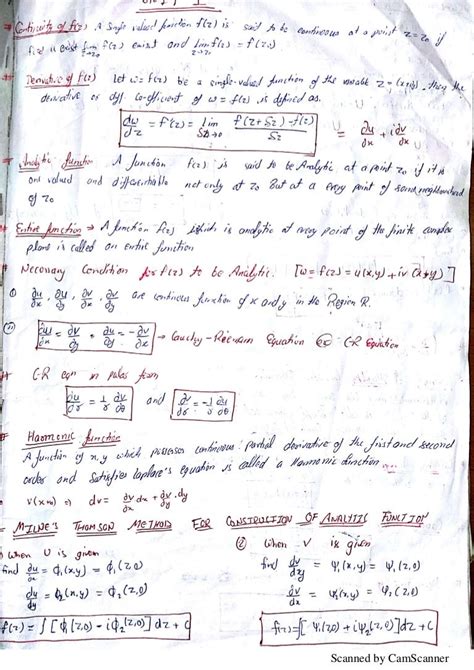 Continuity of f(z) ⇒ A single valued function f(z) is said to be continuous at a point z = z₀ if
exist lim z→z₀ f(z) exist and lim z→z₀ f(z) = f(z₀)
Derivative of f(z) Let w = f(z) be a single-valued function of the variable z = (x+iy), then the
derivative or diff co-efficient of w = f(z) is defined as.
dw/dz = f'(z) = lim δz→0 f(z+δz) - f(z) / δz = ∂u/∂x + i ∂v/∂x
Analytic function A function f(z) is said to be Analytic at a point z₀ if it is
one valued and differentiable not only at z₀ But at a every point of some neighbourhood
of z₀.
Entire function ⇒ A function f(z) which is analytic at every point of the finite complex
plane is called an entire function
Necessary Condition for f(z) to be Analytic. [w = f(z) = u(x,y) + iv (x+y)]
① ∂u/∂x, ∂u/∂y, ∂v/∂x, ∂v/∂y are continous function of x and y in the Region R.
② ∂u/∂x = ∂v/∂y , ∂u/∂y = -∂v/∂x → Cauchy-Riemann Equation or C-R Equation
C-R eqn in polar form
∂u/∂r = 1/r ∂v/∂θ and ∂v/∂r = -1/r ∂u/∂θ
Harmonic function
A function of x, y which possesses continuous partial derivative of the first and second
order and satisfies Laplace's equation is called a Harmonic function
dv = ∂v/∂x dx + ∂v/∂y . dy
MILNE'S THOMSON METHOD FOR CONSTRUCTION OF ANALYTIC FUNCTION
when U is given
find ∂u/∂x = φ₁(x,y) = φ₁(z,0)
∂u/∂y = φ₂(x,y) = φ₂(z,0)
f(z) = ∫[φ₁(z,0) - iφ₂(z,0)]dz + C
② when V is given
find ∂v/∂y = ψ₁(x,y) = ψ₁(z,0)
∂v/∂x = ψ₂(x,y) = ψ₂(z,0)
f(z) = ∫[ψ₁(z,0) + iψ₂(z,0)]dz + C
Scanned by CamScanner